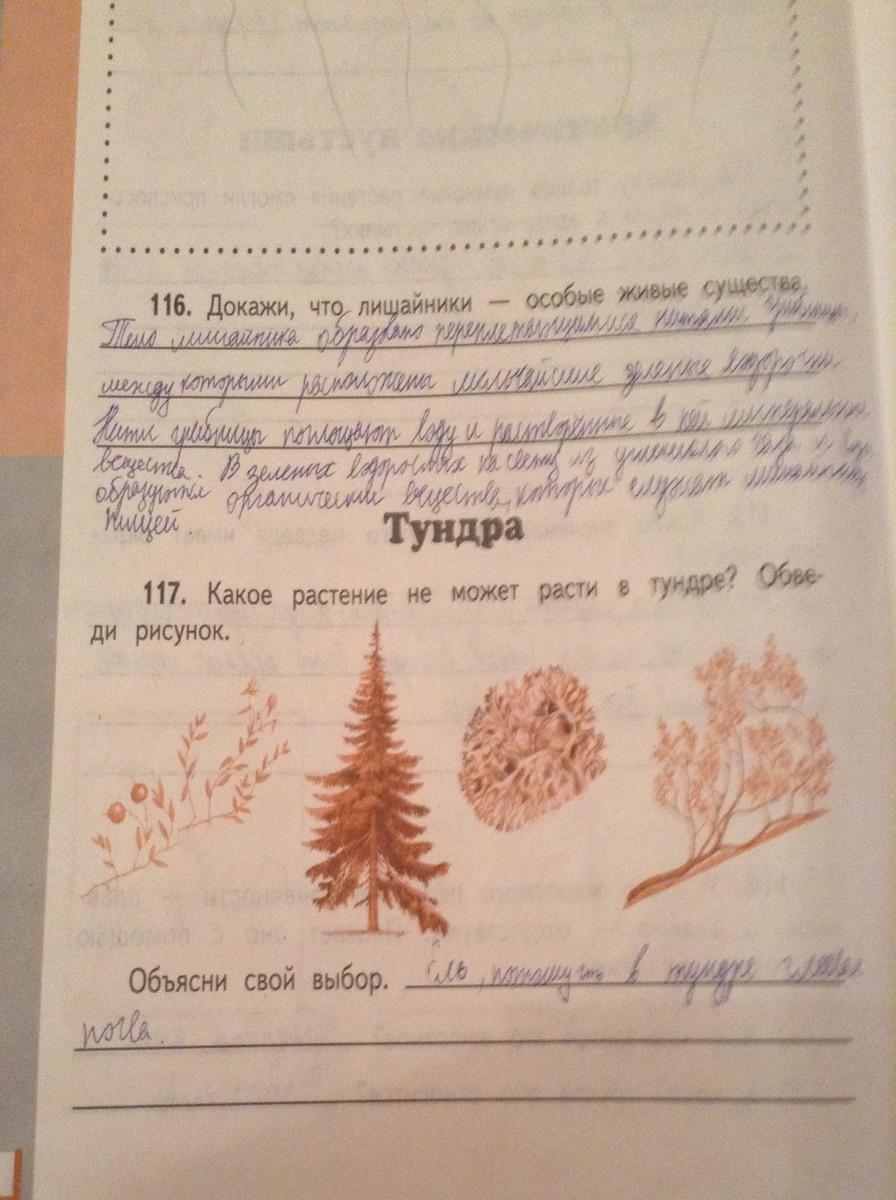 116. Докажи, что лишайники — особые живые существа.
Тело лишайника образовано переплетающимися нитями грибницы,
между которыми расположены мельчайшие зеленые водоросли.
Нити грибницы поглощают воду и растворенные в ней минеральные
вещества. В зеленых водорослях на свету из углекислого газа и
образуются органические вещества, которые служат лишайнику
пищей
Тундра
117. Какое растение не может расти в тундре? Обве-
ди рисунок.
Объясни свой выбор. Ель, потому что в тундре
почва.